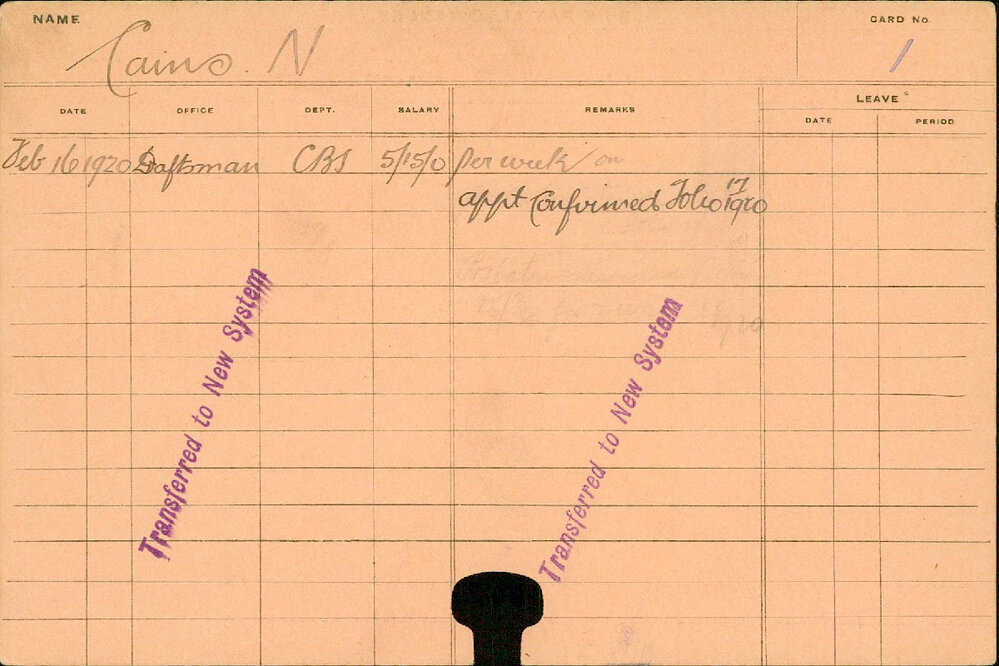 NAME
CARD No.
Cains. N
1
DATE OFFICE DEPT. SALARY REMARKS LEAVE
DATE PERIOD
Feb 16 1920 Daftsman CBS 5/15/0 per week / on
appt Confirmed Folio 17 1920
Transferred to New System
Transferred to New System